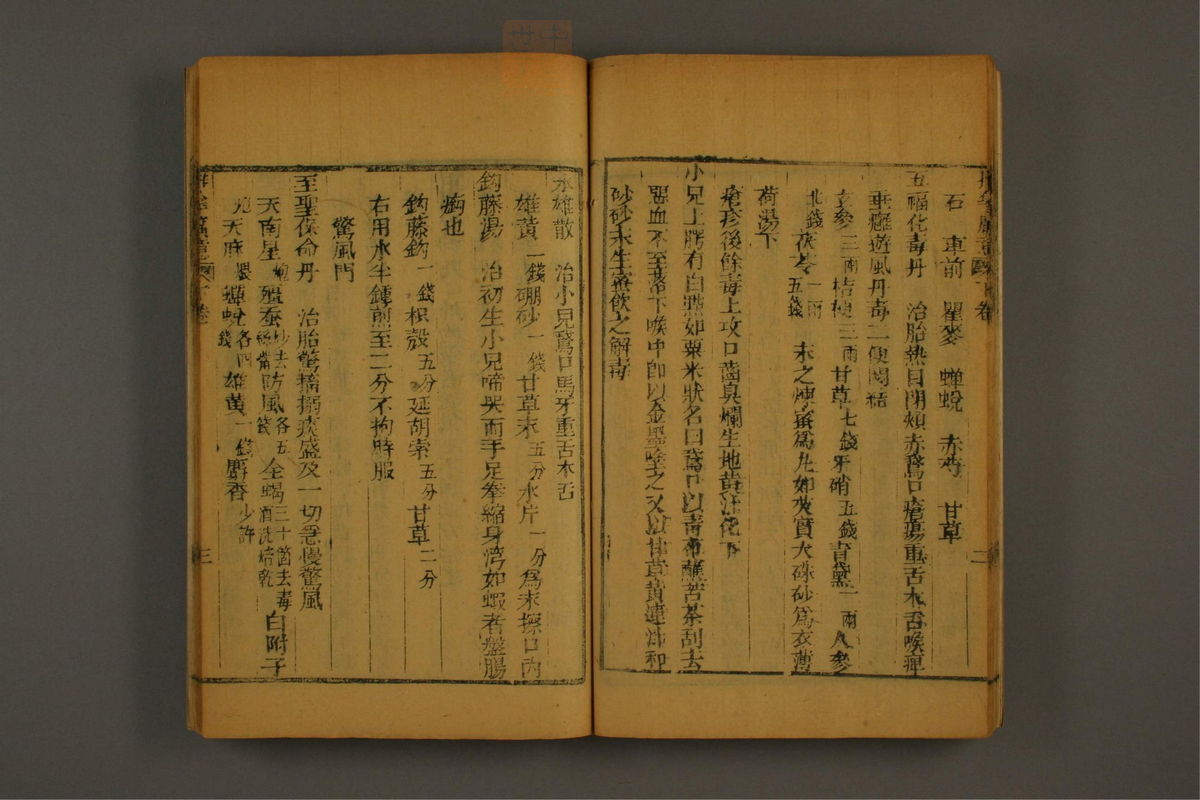 石 車前 瞿麥 蟬蛻 赤芍 甘草
五福化毒丹 治胎熱目閉頰赤鵞口瘡瘍重舌木舌喉痺
重齶遊風丹毒二便閉結
玄參三兩桔梗二兩甘草七錢牙硝五錢青黛一兩人參
北錢茯苓一兩五錢 末之煉蜜為丸如芡實大硃砂為衣薄
荷湯下
瘡疹後餘毒上攻口齒臭爛生地黃汁化下
小兒上腭有白點如粟米狀名曰鵞口以青布蘸苦茶刮去
惡血不至落下喉中即以金墨塗之又以甘草黃連汁和
砂砂末生蜜飲之解毒
氷雄散 治小兒鵞口馬牙重舌木舌
雄黃一錢硼砂一錢甘草末五分氷片一分為末擦口內
鈎藤湯 治初生小兒啼哭而手足拳縮身灣如蝦者盤腸
痾也
鈎藤鈎一錢枳殼五分延胡索五分甘草二分
右用水半鍾煎至二分不拘時服
驚風門
至聖保命丹 治胎驚搐搦痰盛及一切急慢驚風
天南星炮殭蠶炒去絲嘴防風各五錢全蝎三十箇去毒酒洗焙乾白附子
炮天麻煨蟬蛻各四錢雄黃一錢麝香少許
二
三